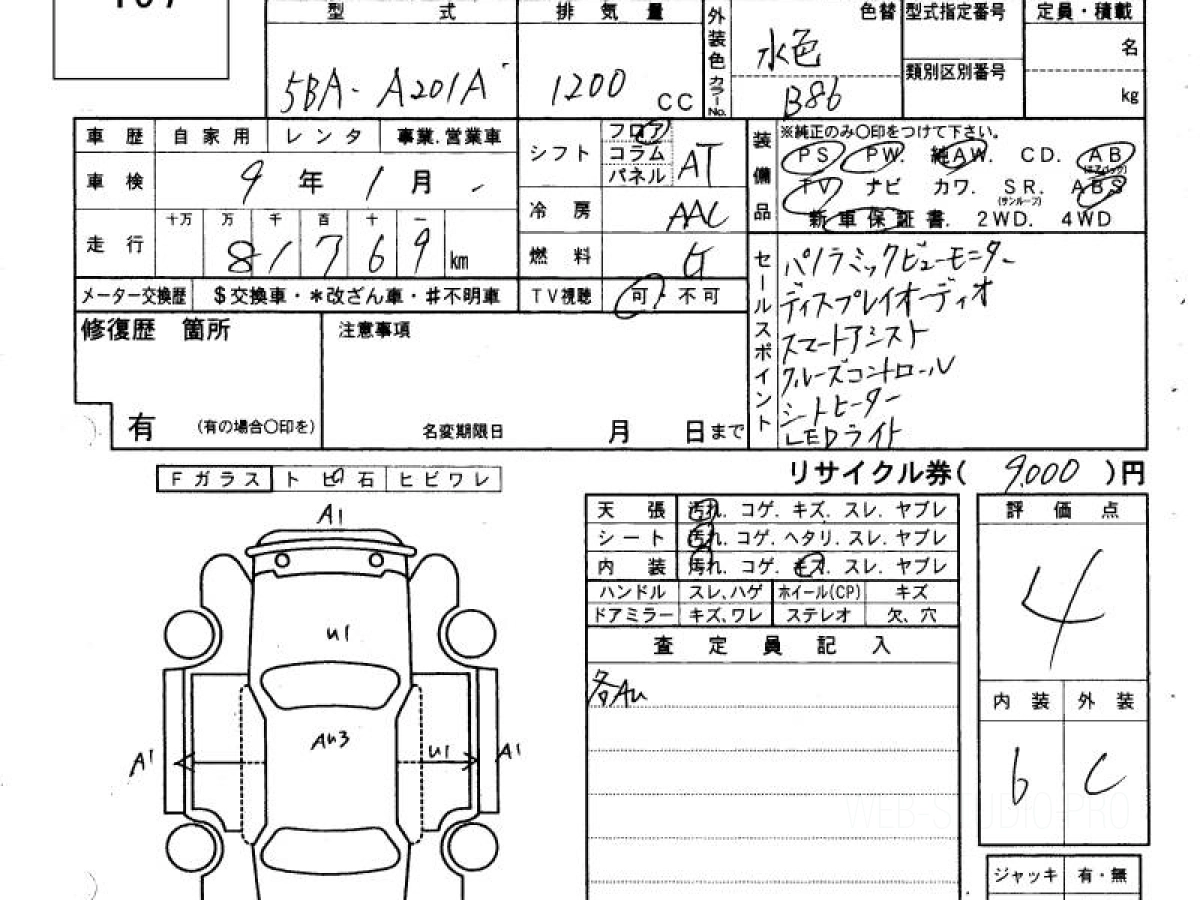 型式 排気量 外装色 カラーNo. 色替 型式指定番号 定員・積載
5BA-A201A 1200 CC 水色 B86 類別区別番号 名 kg
車歴 自家用 レンタ 事業.営業車 シフト フロア コラム パネル AT
装備品 ※純正のみ〇印をつけて下さい。
PS. PW. 純AW. CD. AB (エアバック)
車検 9年1月
TV ナビ カワ. SR. (サンルーフ) ABS
冷房 AAC
新車保証書. 2WD. 4WD
走行 十万 万 千 百 十 一
81769 km
燃料 ガ
メーター交換歴 $交換車・*改ざん車・#不明車 TV視聴 可・不可
セールスポイント
パノラミックビューモニター
ディスプレイオーディオ
スマートアシスト
クルーズコントロール
シートヒーター
LEDライト
修復歴 箇所 注意事項
有 (有の場合〇印を) 名変期限日 月 日まで
リサイクル券( 9,000 )円
Fガラス トビ石 ヒビワレ
A1
U1
AU3
U1
A1
A1
天張 汚れ. コゲ. キズ. スレ. ヤブレ
シート 汚れ. コゲ. ヘタリ. スレ. ヤブレ
内装 汚れ. コゲ. キズ. スレ. ヤブレ
ハンドル スレ、ハゲ ホイール(CP) キズ
ドアミラー キズ、ワレ ステレオ 欠、穴
査定員記入
各AU
評価点
4
内装 外装
b C
WEB-STUDIO-PRO
ジャッキ 有・無